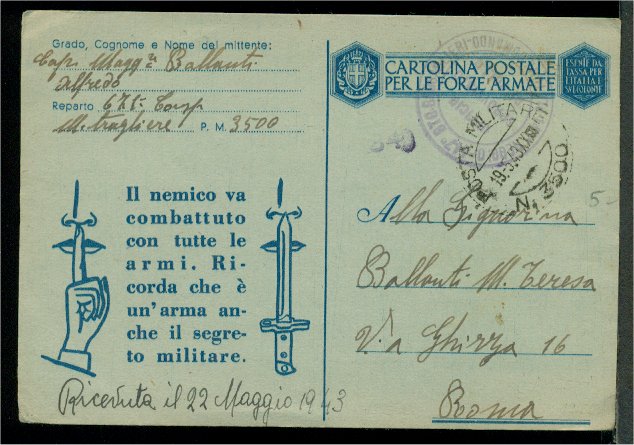 Grado, Cognome e Nome del mittente:
Cap. Magg.re Ballanti
Alfredo
Reparto 671ª Comp
Mitragliere P. M. 3500
Il nemico va
combattuto
con tutte le
armi. Ri-
corda che è
un'arma an-
che il segre-
to militare.
Riceduta il 22 Maggio 1943
CARTOLINA POSTALE
PER LE FORZE ARMATE
ESENTE DA
TASSA PER
L'ITALIA E
SUE COLONIE
POSTA MILITARE
N. 3500
5-
Alla Signorina
Ballanti M. Teresa
Via Ghizza 16
Roma